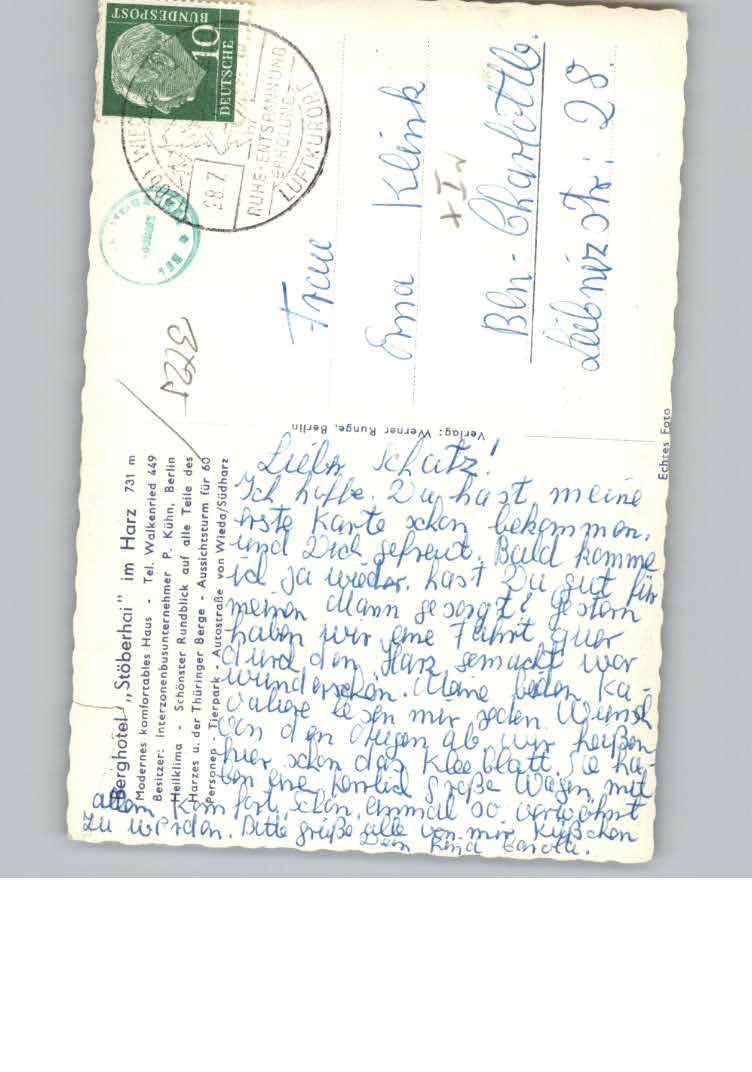 Berghotel „Stöberhai" im Harz 731 m
Modernes komfortables Haus - Tel. Walkenried 449
Besitzer: Interzonenbusunternehmer P. Kühn, Berlin
Heilklima - Schönster Rundblick auf alle Teile des
Harzes u. der Thüringer Berge - Aussichtsturm für 60
Personen - Tierpark - Autostraße von Wieda/Südharz
Lieber Schatz!
Ich hoffe, Du hast meine
erste Karte schon bekommen,
und Dich gefreut. Bald komme
ich ja wieder, hast Du gut für
meinen Mann gesorgt? gestern
haben wir eine Fahrt quer
durch den Harz gemacht war
wunderschön. Meine beiden Ka-
valiere lesen mir jeden Wunsch
von den Augen ab wir heißen
hier schon das Kleeblatt. Sie ha-
ben eine herrlich große Wagen, mit
allem Komfort, schön, einmal so verwöhnt
zu werden. Bitte grüße alle von mir Küßchen
Dein Kind
Verlag: Werner Runge, Berlin
Echtes Foto
DEUTSCHE
BUNDESPOST
10
28.7.
RUHE · ENTSPANNUNG
ERHOLUNG
LUFTKURORT
3725
Frau
Erna Klink
Bln-Charlottb.
Leibnizstr: 28.